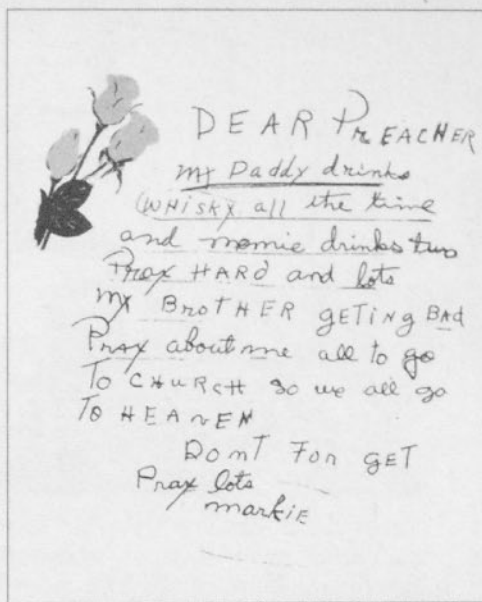 DEAR PrEACHER
my Daddy drinks
WHISKy all the time
and momie drinks two
Pray HARD and lots
my BroTHER geTiNg BAd
Pray about me all to go
To CHURCH so we all go
To HEAvEN
DonT For gET
Pray lots
markiE